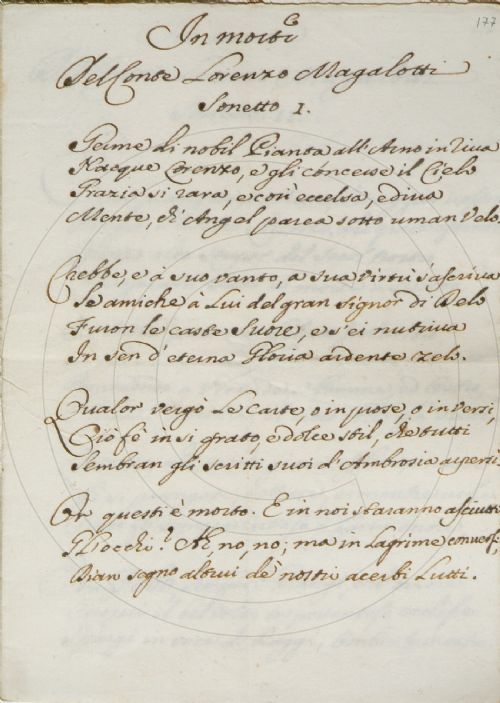 177
In morte
Del Conte Lorenzo Magalotti
Sonetto 1.
Germe di nobil Pianta all'Arno in riva
Nacque Lorenzo, e gli concesse il Cielo
Grazia si rara, e così eccelsa, e diva
Mente, ch'Angel parea sotto uman velo.
Crebbe, e à suo vanto, a sua virtù s'ascriva
Se amiche à Lui del gran Signor di Delo
Furon le caste Suore, e s'ei nutriva
In sen d'eterna Gloria ardente zelo.
Qualor vergò le carte, o in prose, o in versi,
Ciò fè in si grato, e dolce stil, che tutti
Sembran gli scritti suoi d'Ambrosia aspersi.
Or questi è morto. E in noi staranno asciutti
Gl'occhi? Ah, no, no; ma in lagrime conversi,
Dian segno altrui de' nostri acerbi Lutti.